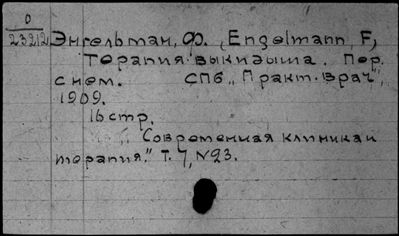 0
23212
Энгельман, Ф. (Engelmann, F)
Терапия выкидыша. Пер.
с нем. СПб „Практ. Врач",
1909.
16 стр.
Современная клиника и
терапия." Т. 7, N23.